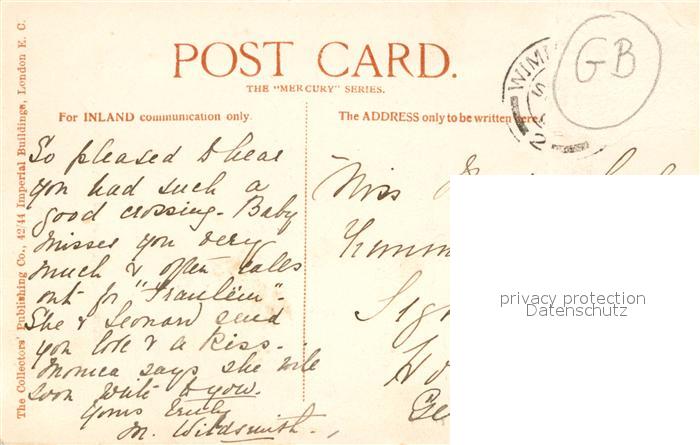 POST CARD.
THE "MERCURY" SERIES.
For INLAND communication only.
The ADDRESS only to be written here.
The Collectors' Publishing Co., 42/44 Imperial Buildings, London E. C.
WIM
GB
So pleased to hear
you had such a
good crossing - Baby
misses you very
much & often calls
out for "Fraulein".
She & Leonard send
you love & a kiss -
Monica says she will
soon write to you.
Yours Truly
M. Wildsmith.
Miss
privacy protection
Datenschutz